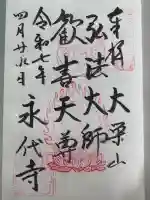 奉拝 大栄山
弘法大師
歓喜天尊
永代寺
令和七年
四月廿九日